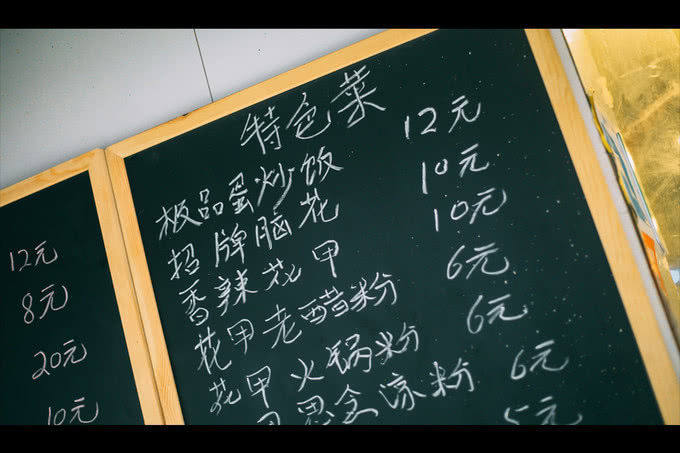 12元
8元
20元
10元
特色菜
极品蛋炒饭 12元
招牌脑花 10元
香辣花甲 10元
花甲老醋粉 6元
花甲火锅粉 6元
凉粉 6元
5元